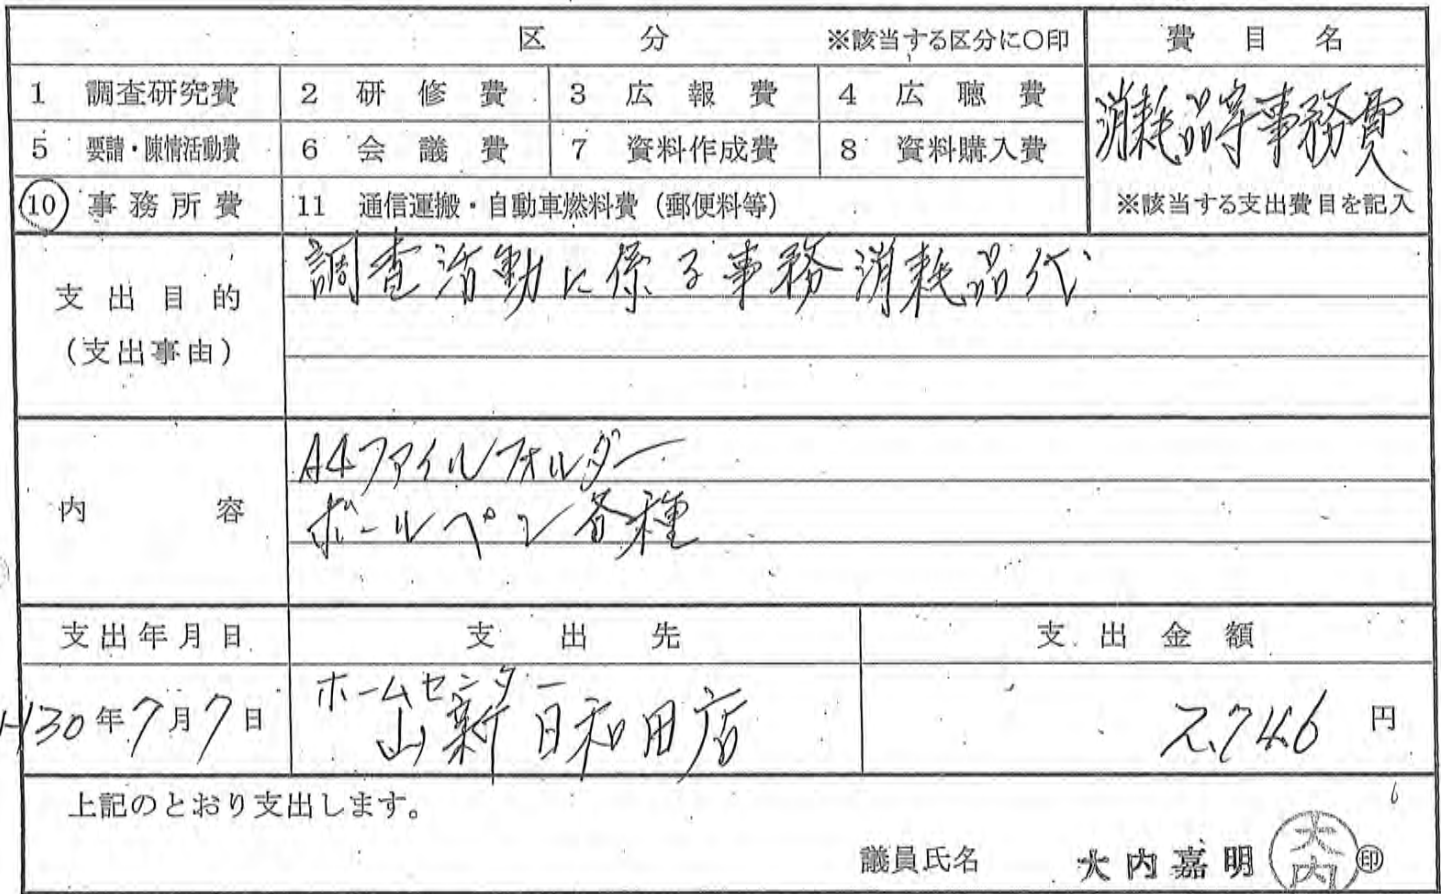 区 分 ※該当する区分に○印 費目名
1 調査研究費 2 研修費 3 広報費 4 広聴費 消耗品等事務費
5 要請・陳情活動費 6 会議費 7 資料作成費 8 資料購入費
10 事務所費 11 通信運搬・自動車燃料費（郵便料等） ※該当する支出費目を記入
支出目的
（支出事由）
調査活動に係る事務消耗品代
内容
A4ファイルフォルダー
ボールペン各種
支出年月日 支出先 支出金額
H30年7月7日 ホームセンター
山新 日和田店 2,746 円
上記のとおり支出します。
議員氏名 大内嘉明 大内 印